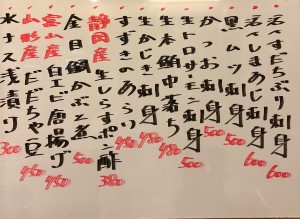 活〆すだちぶり刺身 600
活〆しまあじ刺身 600
黒ムツ刺身 500
かつお刺身 500
生本鮪中落ち 480
生サーモン刺身 480
生かじき刺身 480
すずきのあらい 450
静岡産 生しらすポン酢 380
金目鯛かぶと煮 500
富山産 白エビ唐揚げ 450
山形産 だだちゃ豆 450
水ナス浅漬け 300